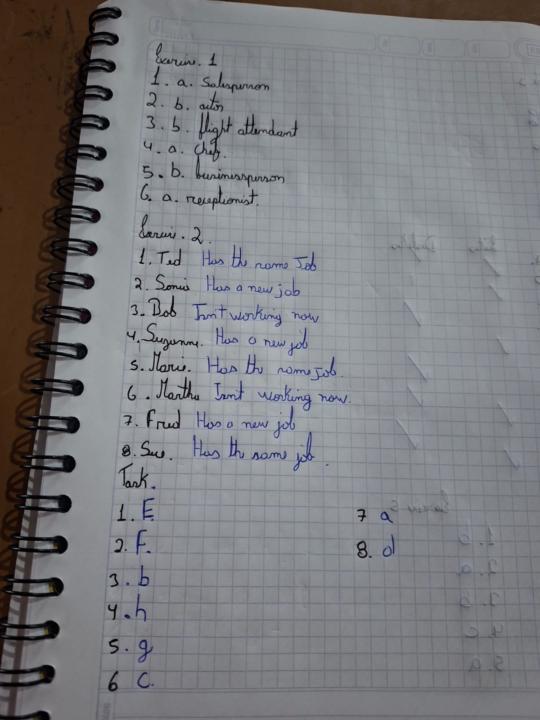 Exercise. 1
1. a. Salesperson
2. b. actor
3. b. flight attendant
4. a. chef.
5. b. businessperson
6. a. receptionist.
Exercise. 2.
1. Ted Has the same Job
2. Sonia Has a new job
3. Bob Isn't working now
4. Suzanne. Has a new job
5. Maria. Has the same job.
6. Martha Isn't working now.
7. Fred Has a new job
8. Sue. Has the same job.
Task.
1. E.
2. F.
3. b
4. h
5. g
6 c.
7 a
8. d